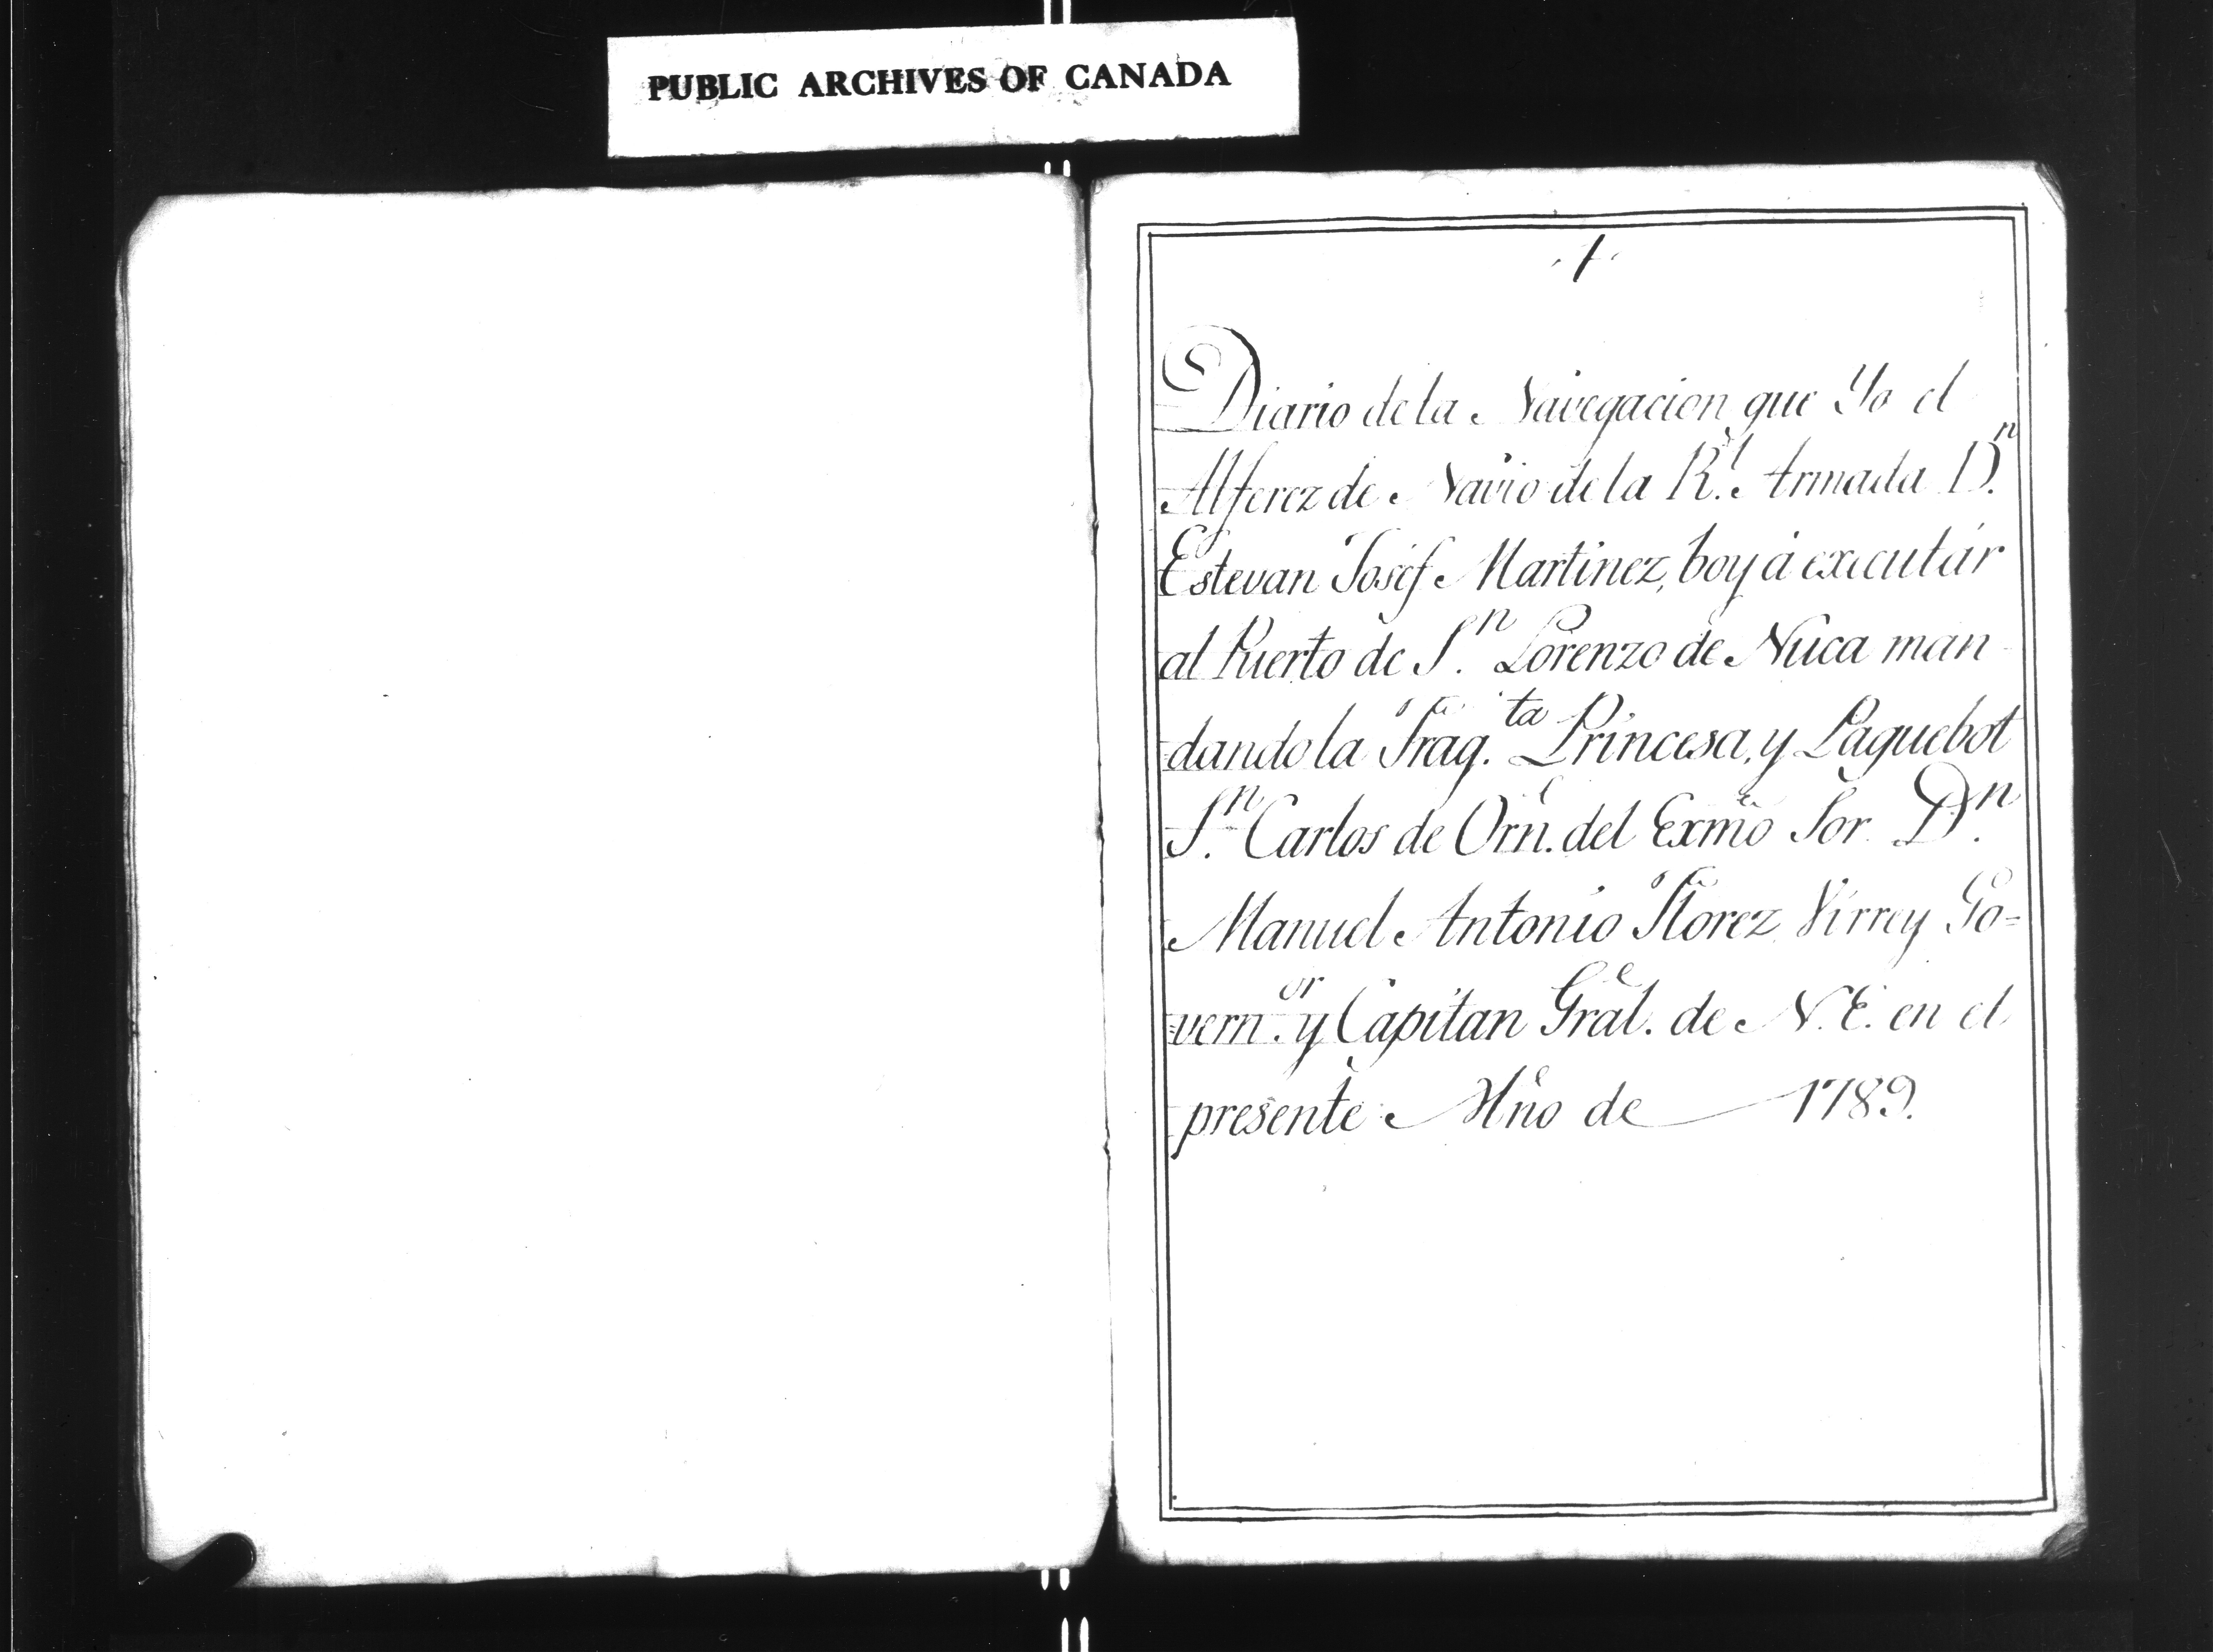 PUBLIC ARCHIVES OF CANADA
Diario de la Navegacion que Yo el
Alferez de Navio de la R.l Armada D.n
Estevan Josef Martinez, boy á executár
al Puerto de S.n Lorenzo de Nuca man
dando la Frag.ta Princesa, y Paquebot
S.n Carlos de Orñ. del Exmõ Sor. D.n
Manuel Antonio Florez Virrey Go=
=vern.or y Capitan Gral. de N.E. en el
presente Año de 1789.